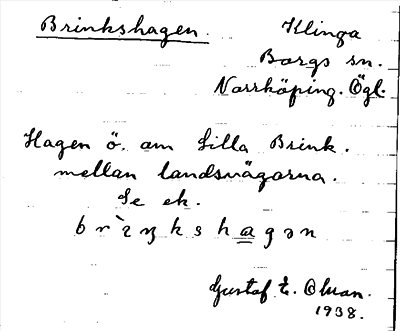 Brinkshagen. Klinga
Borgs sn.
Norrköping. Ögl.
Hagen ö. om Lilla Brink.
mellan landsvägarna.
Se ek.
br`ıŋkshagən
Gustaf E.
1938.